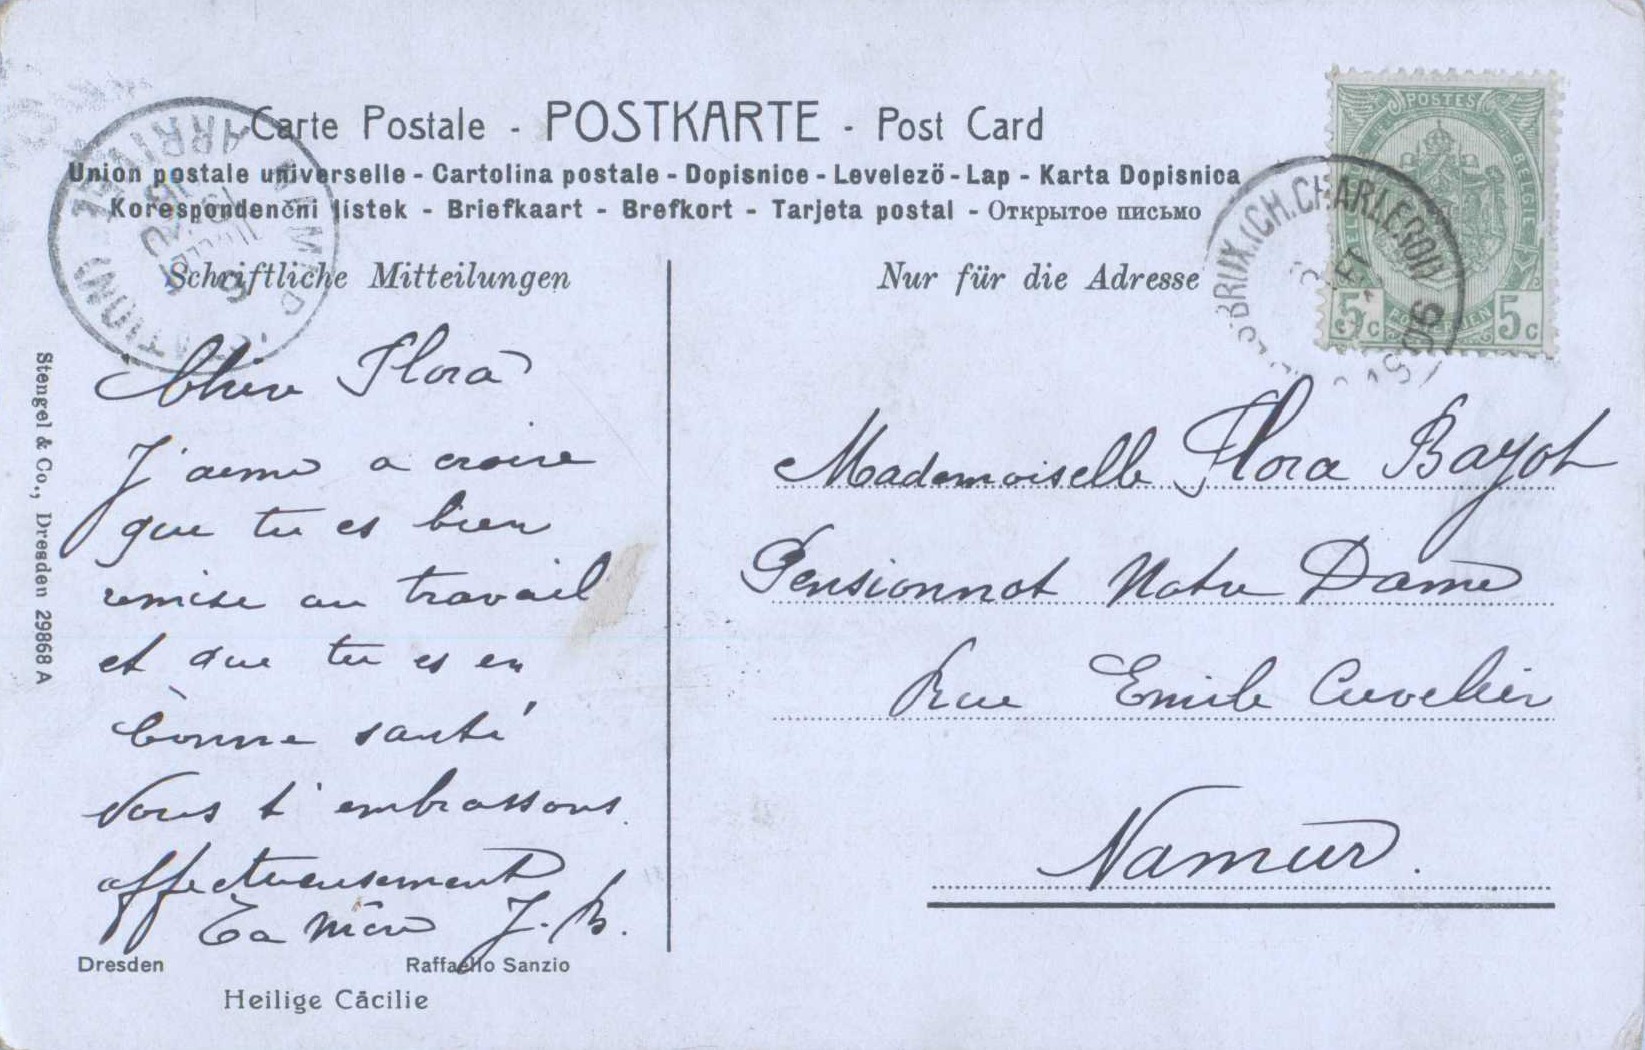 Carte Postale - POSTKARTE - Post Card
Union postale universelle - Cartolina postale - Dopisnice - Levelező-Lap - Karta Dopisnica
Korespondenční lístek - Briefkaart - Brefkort - Tarjeta postal - Открытое письмо
Schriftliche Mitteilungen
Chère Flora
J'aime a croire
que tu es bien
remise au travail
et que tu es en
bonne santé
Nous t'embrassons
affectueusement
Ta mère J. B.
Dresden
Raffaello Sanzio
Heilige Cäcilie
Stengel & Co., Dresden 29868 A
Nur für die Adresse
POSTES
5c 5c
BRUX.(CH.CHARLEROI)
NAMUR (STATION)
ARRIVÉE
Mademoiselle Flora Bayot
Pensionnat Notre Dame
Rue Emile Cuvelier
Namur.